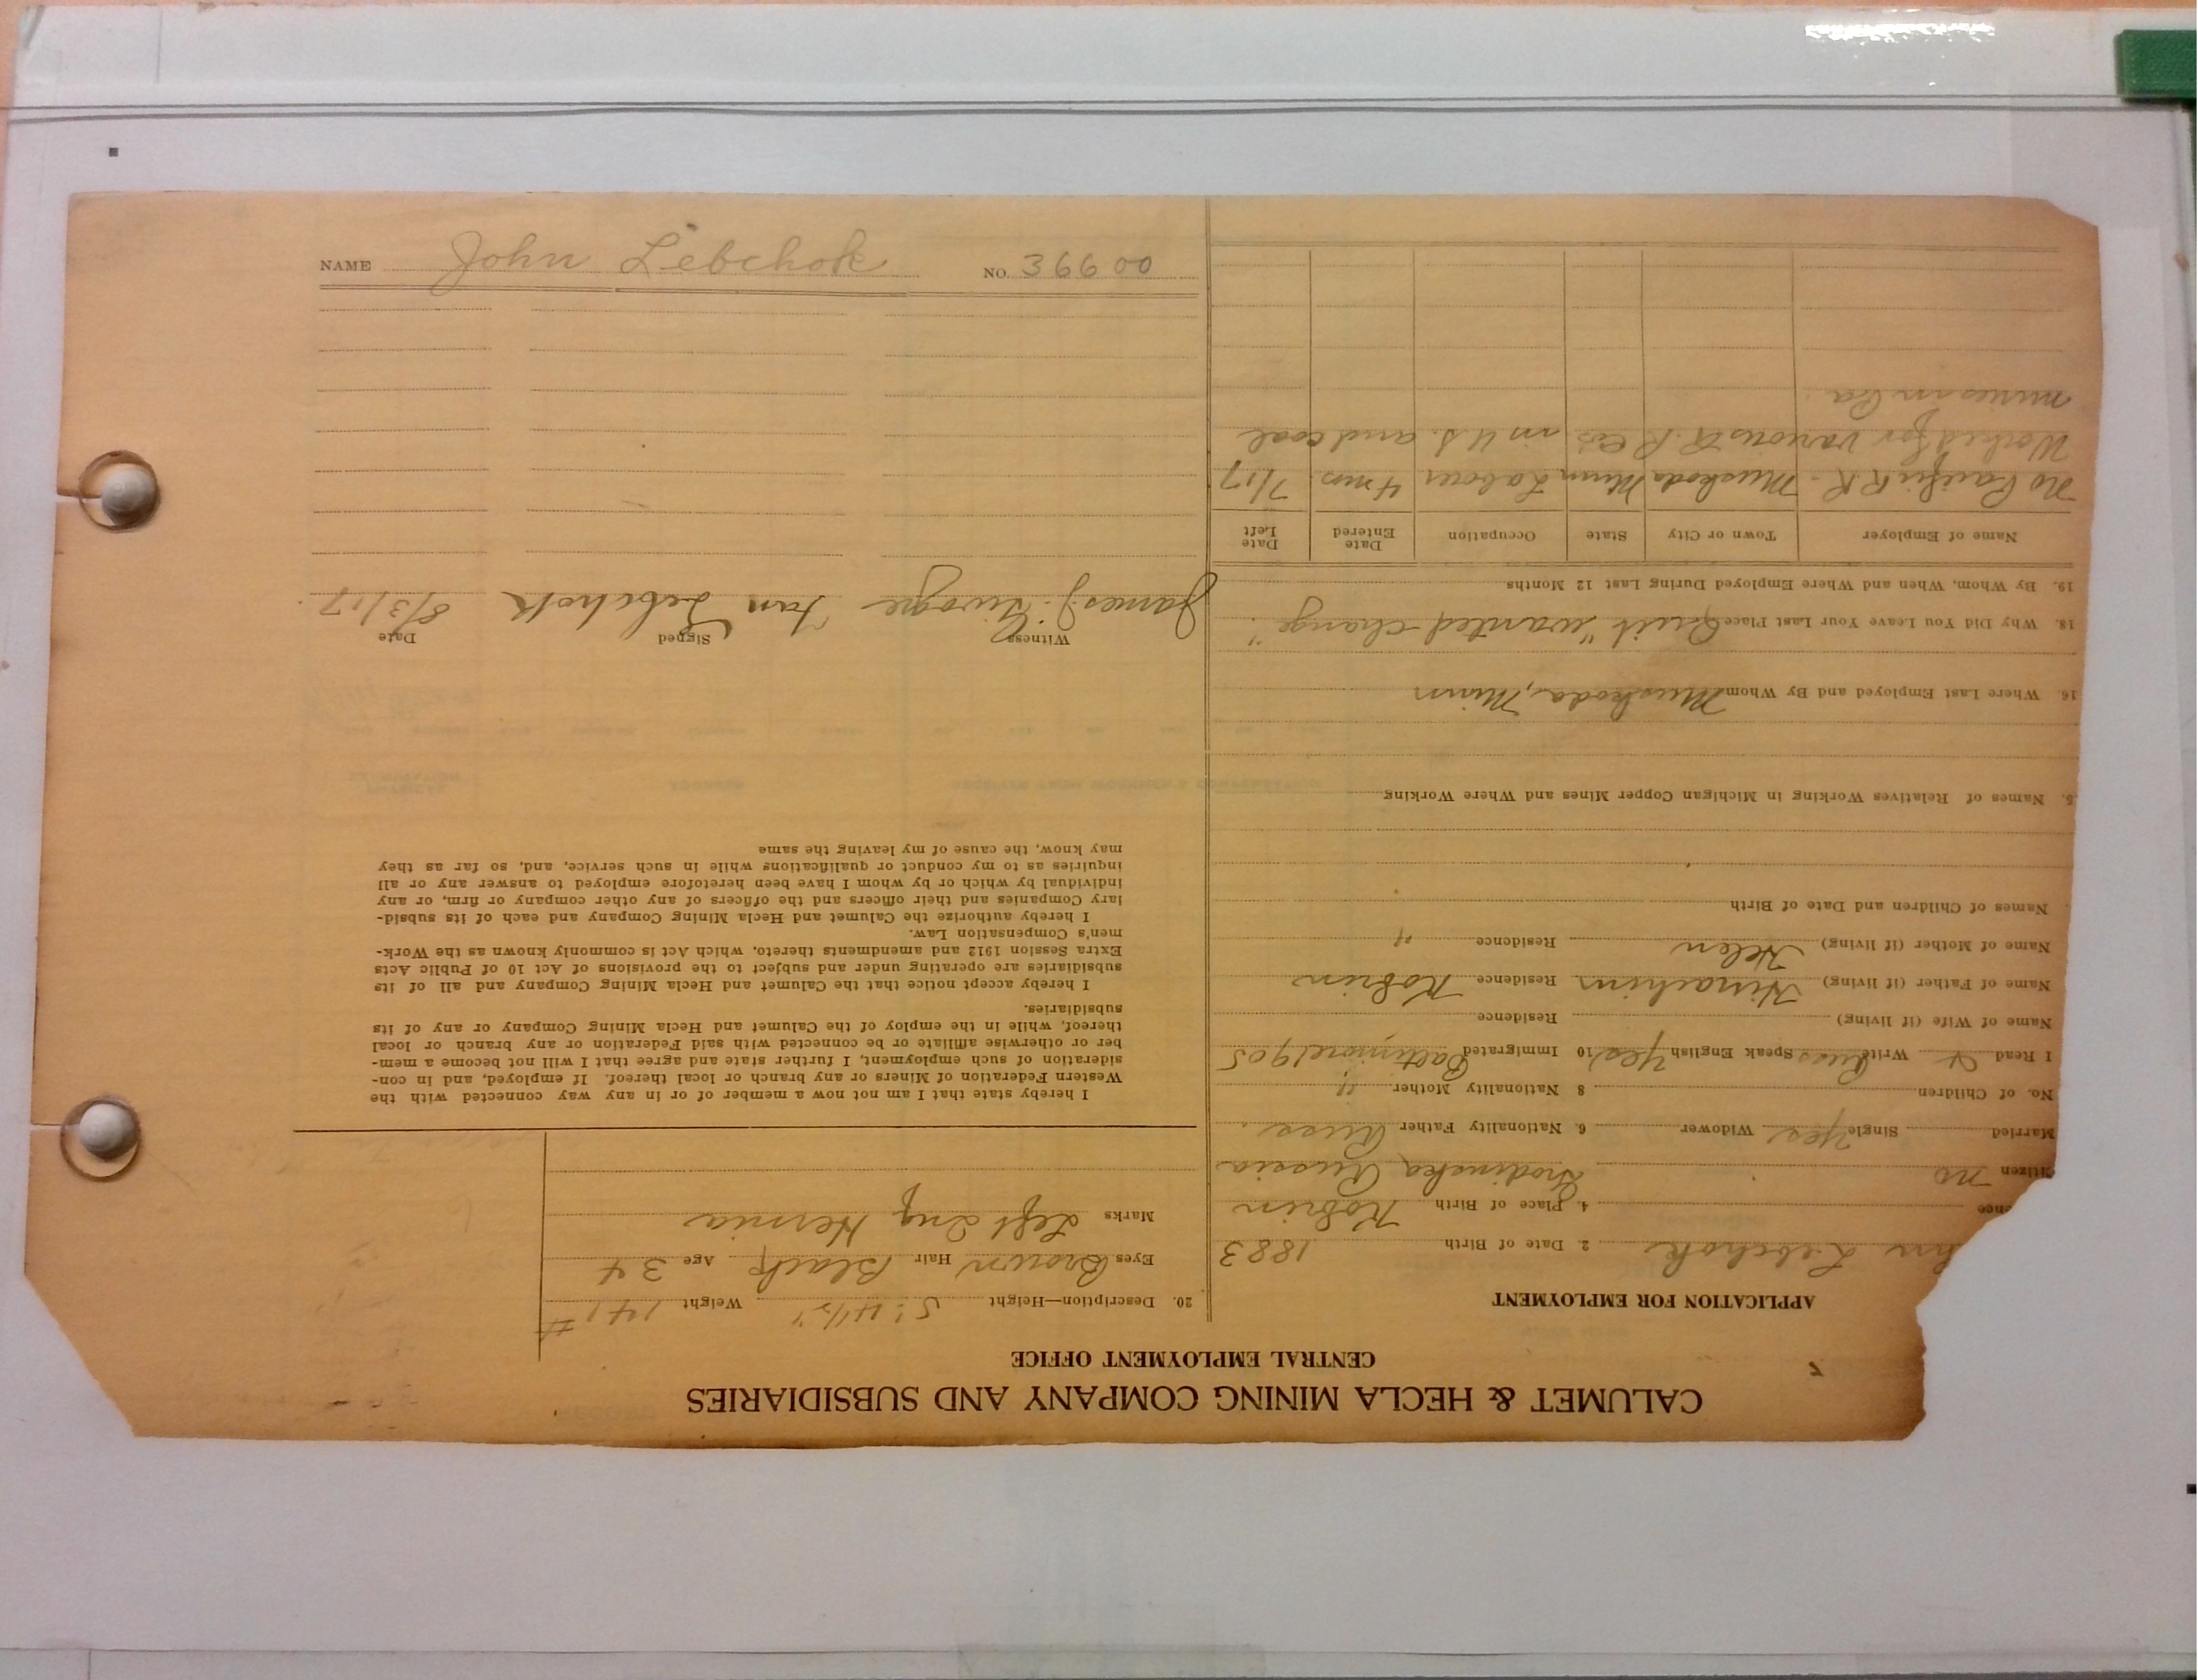 CALUMET & HECLA MINING COMPANY AND SUBSIDIARIES
CENTRAL EMPLOYMENT OFFICE
APPLICATION FOR EMPLOYMENT
hn Lebchok 2. Date of Birth 1883
ence 4. Place of Birth Kobrin
itizen no Grodinska Russia
Married Single Yes Widower 6. Nationality Father Russ.
No. of Children 8 Nationality Mother "
I Read & Write Russ Speak English Yes 10 Immigrated Baltimore 1905
Name of Wife (if living) Residence
Name of Father (if living) Residence Kobrin
Name of Mother (if living) Helen Residence "
Names of Children and Date of Birth
5. Names of Relatives Working in Michigan Copper Mines and Where Working
16. Where Last Employed and By Whom Muskoda, Minn
18. Why Did You Leave Your Last Place Quit "wanted change".
19. By Whom, When and Where Employed During Last 12 Months
Name of Employer Town or City State Occupation Date Entered Date Left
No Pacific R.R. Muskoda Minn Laborer 4 mos. 7/17
Worked for various R.R. Cos in U.S. and coal
mines in Pa.
20. Description—Height 5' 4 1/2" Weight 141 #
Eyes Brown Hair Black Age 34
Marks Left Ing Hernia
I hereby state that I am not now a member of or in any way connected with the
Western Federation of Miners or any branch or local thereof. If employed, and in con-
sideration of such employment, I further state and agree that I will not become a mem-
ber or otherwise affiliate or be connected with said Federation or any branch or local
thereof, while in the employ of the Calumet and Hecla Mining Company or any of its
subsidiaries.
I hereby accept notice that the Calumet and Hecla Mining Company and all of its
subsidiaries are operating under and subject to the provisions of Act 10 of Public Acts
Extra Session 1912 and amendments thereto, which Act is commonly known as the Work-
men's Compensation Law.
I hereby authorize the Calumet and Hecla Mining Company and each of its subsid-
iary Companies and their officers and the officers of any other company or firm, or any
individual by which or by whom I have been heretofore employed to answer any or all
inquiries as to my conduct or qualifications while in such service, and, so far as they
may know, the cause of my leaving the same
Witness Signed Date
James J. Jan Lebchok 8/3/17.
NAME John Lebchok NO. 36600